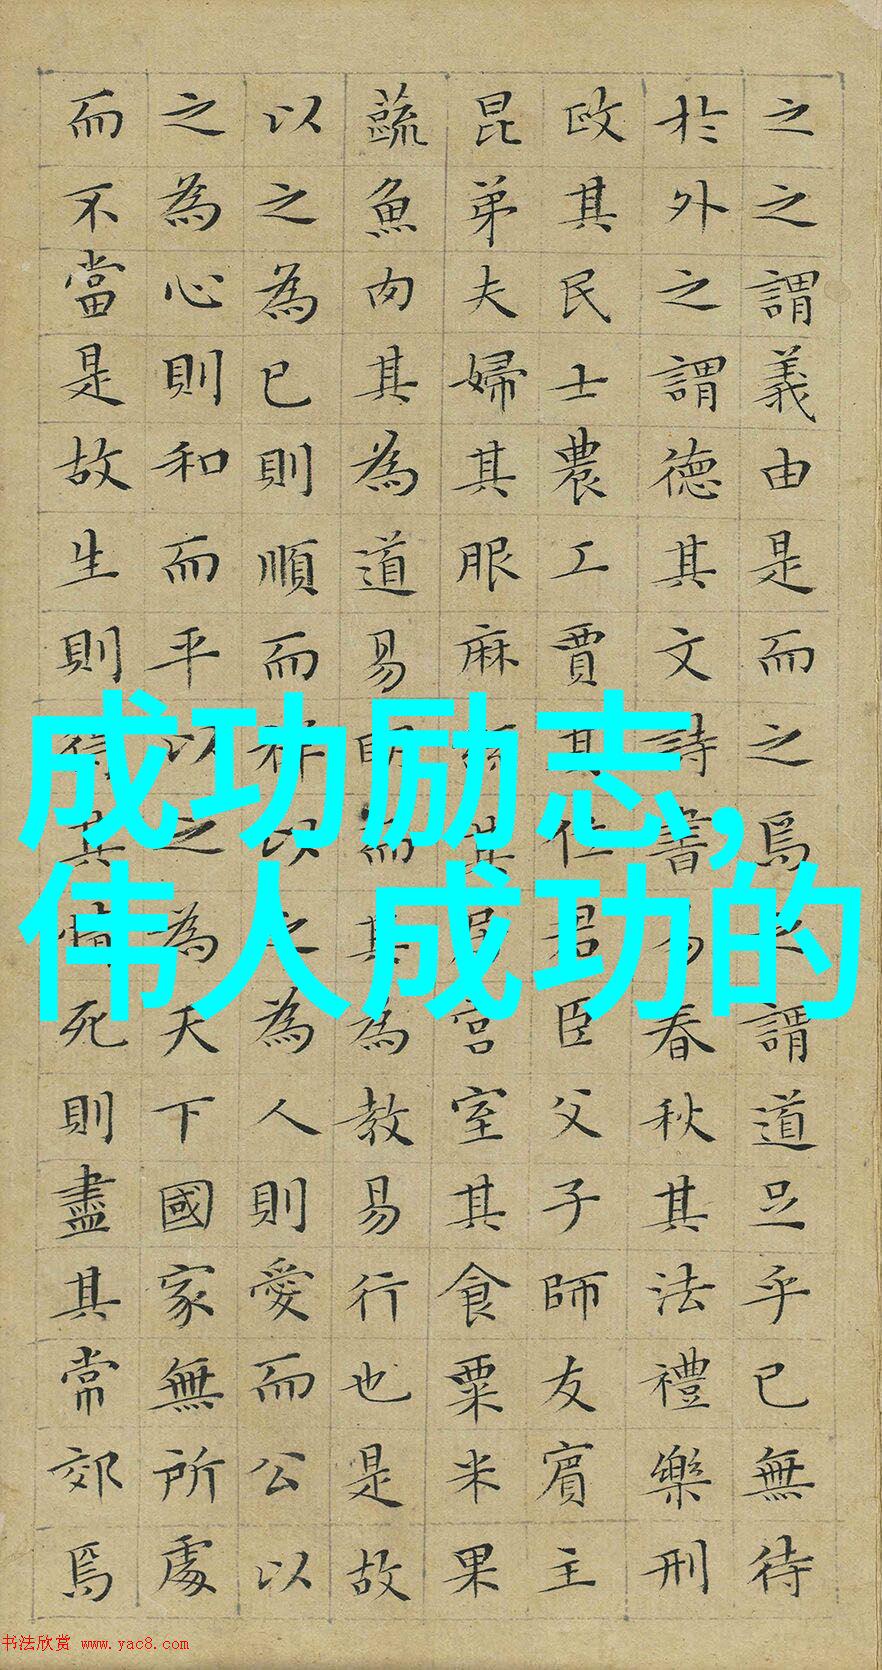 之之謂義由是而之焉之謂道足乎已無待
於外之謂德其文詩書易春秋其法禮樂刑
政其民士農工賈其位君臣父子師友賓主
昆弟夫婦其服麻絲其居宮室其食粟米果
蔬魚肉其為道易明而其為教易行也是故
以之為已則順而祥以之為人則愛而公以
之為心則和而平以之為天下國家無所處
而不當是故生則得其情死則盡其常郊焉
成功励志,
伟人成功的
书法欣赏 www.yac8.com